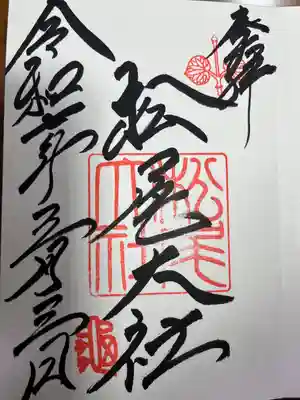 奉拝
松尾大社
松尾
大社
令和七年 月三日